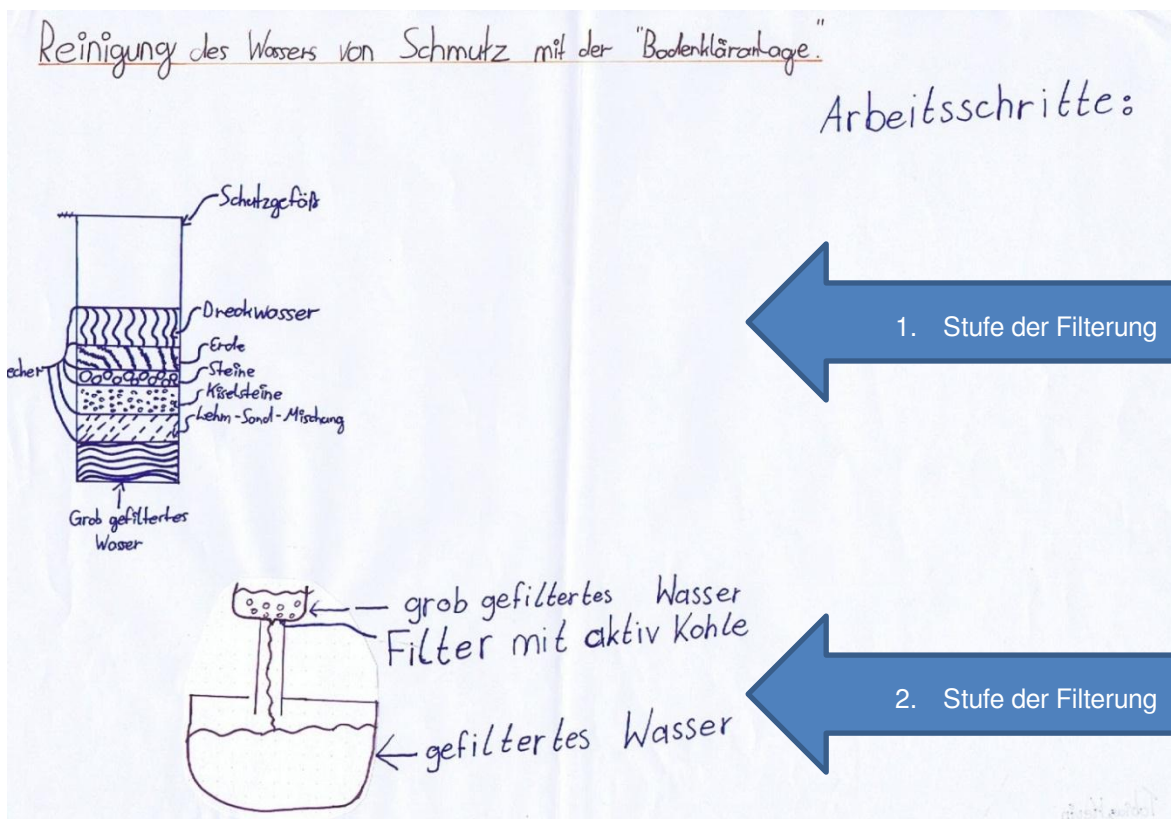 Reinigung des Wassers von Schmutz mit der "Bodenkläranlage."
Arbeitsschritte:
Schutzgefäß
Dreckwasser
Erde
Steine
echer
Kiselsteine
Lehm-Sand-Mischung
Grob gefiltertes
Wasser
1. Stufe der Filterung
grob gefiltertes Wasser
Filter mit aktiv Kohle
gefiltertes Wasser
2. Stufe der Filterung